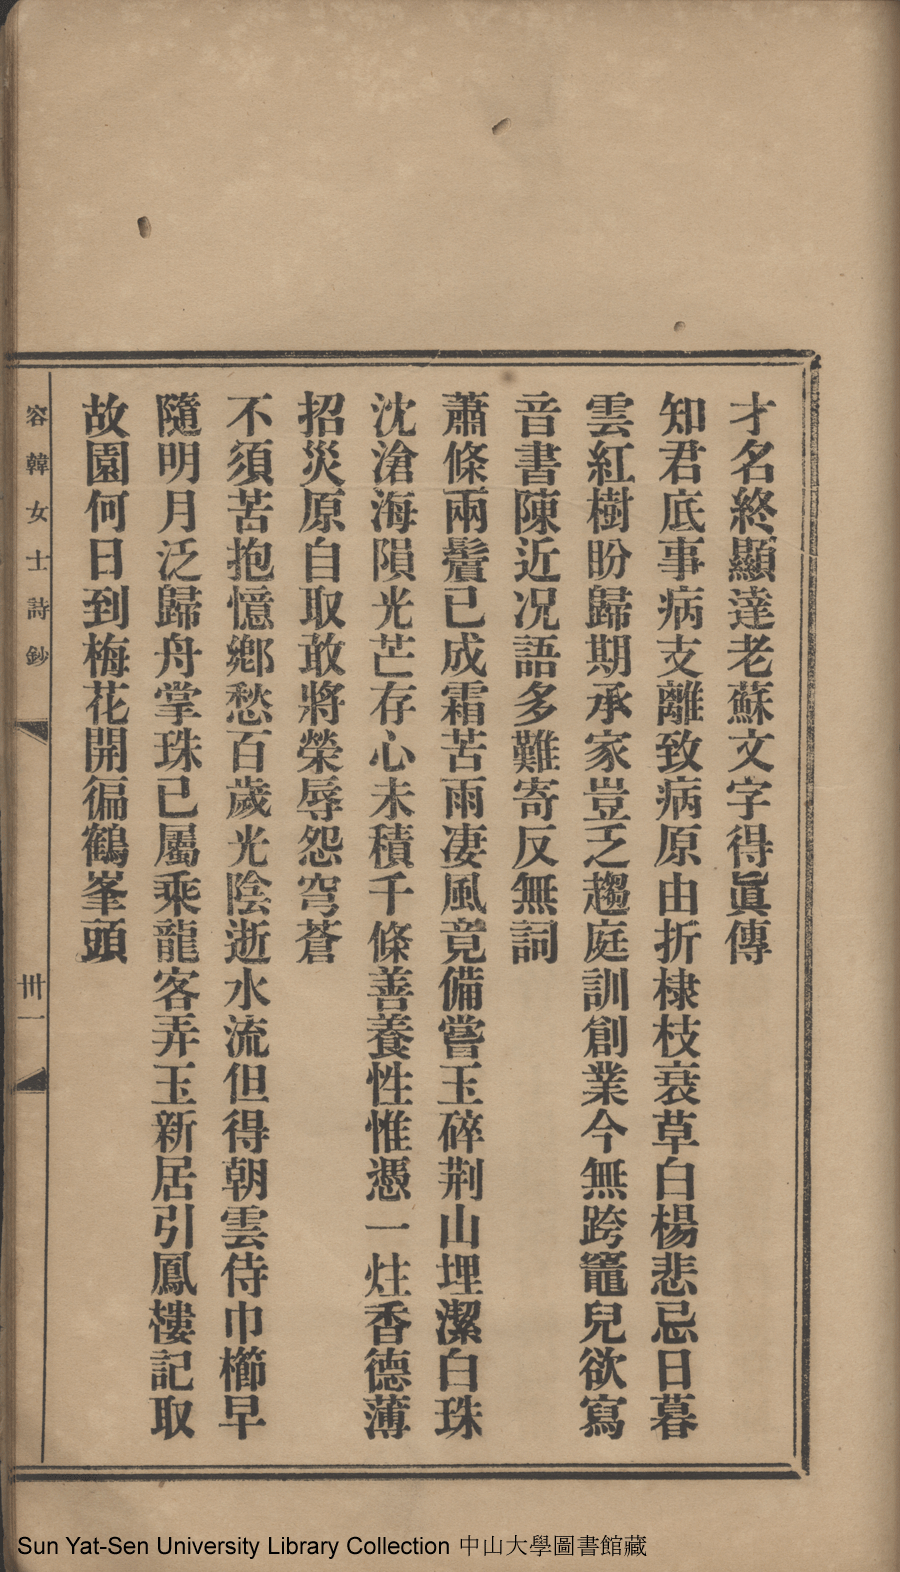 才名終顯達老蘇文字得眞傳
知君底事病支離致病原由折棣枝衰草白楊悲忌日暮
雲紅樹盼歸期承家豈乏趨庭訓創業今無跨竈兒欲寫
音書陳近况語多難寄反無詞
蕭條兩鬢已成霜苦雨凄風竟備嘗玉碎荆山埋潔白珠
沈滄海隕光芒存心未積千條善養性惟憑一炷香德薄
招災原自取敢將榮辱怨穹蒼
不須苦抱憶鄉愁百歲光陰逝水流但得朝雲侍巾櫛早
隨明月泛歸舟掌珠已屬乘龍客弄玉新居引鳳樓記取
故園何日到梅花開徧鶴峯頭
容韓女士詩鈔
卅一
Sun Yat-Sen University Library Collection 中山大學圖書館藏